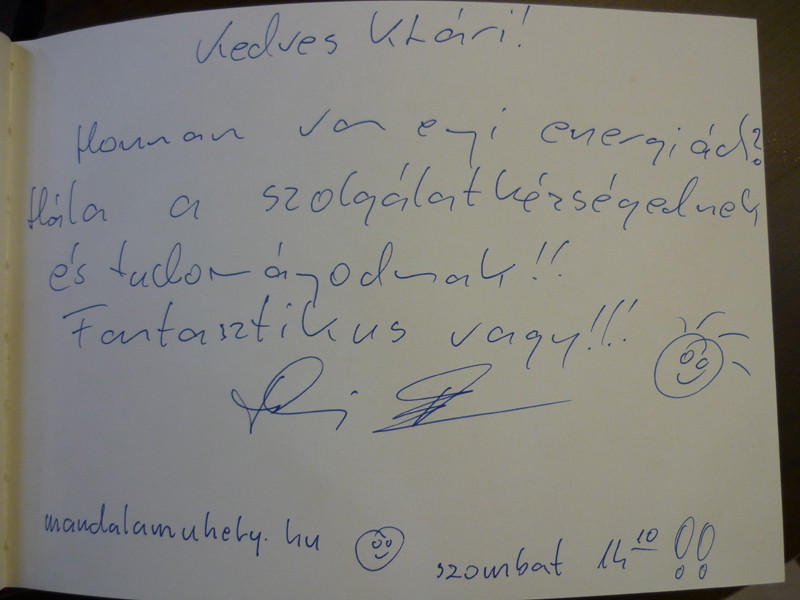 Kedves Klári!
Honnan van enyi energiád?
Hála a szolgálatkészségednek
és tudományodnak!!
Fantasztikus vagy!!!
mandalamuhely.hu
szombat 14 10 !!